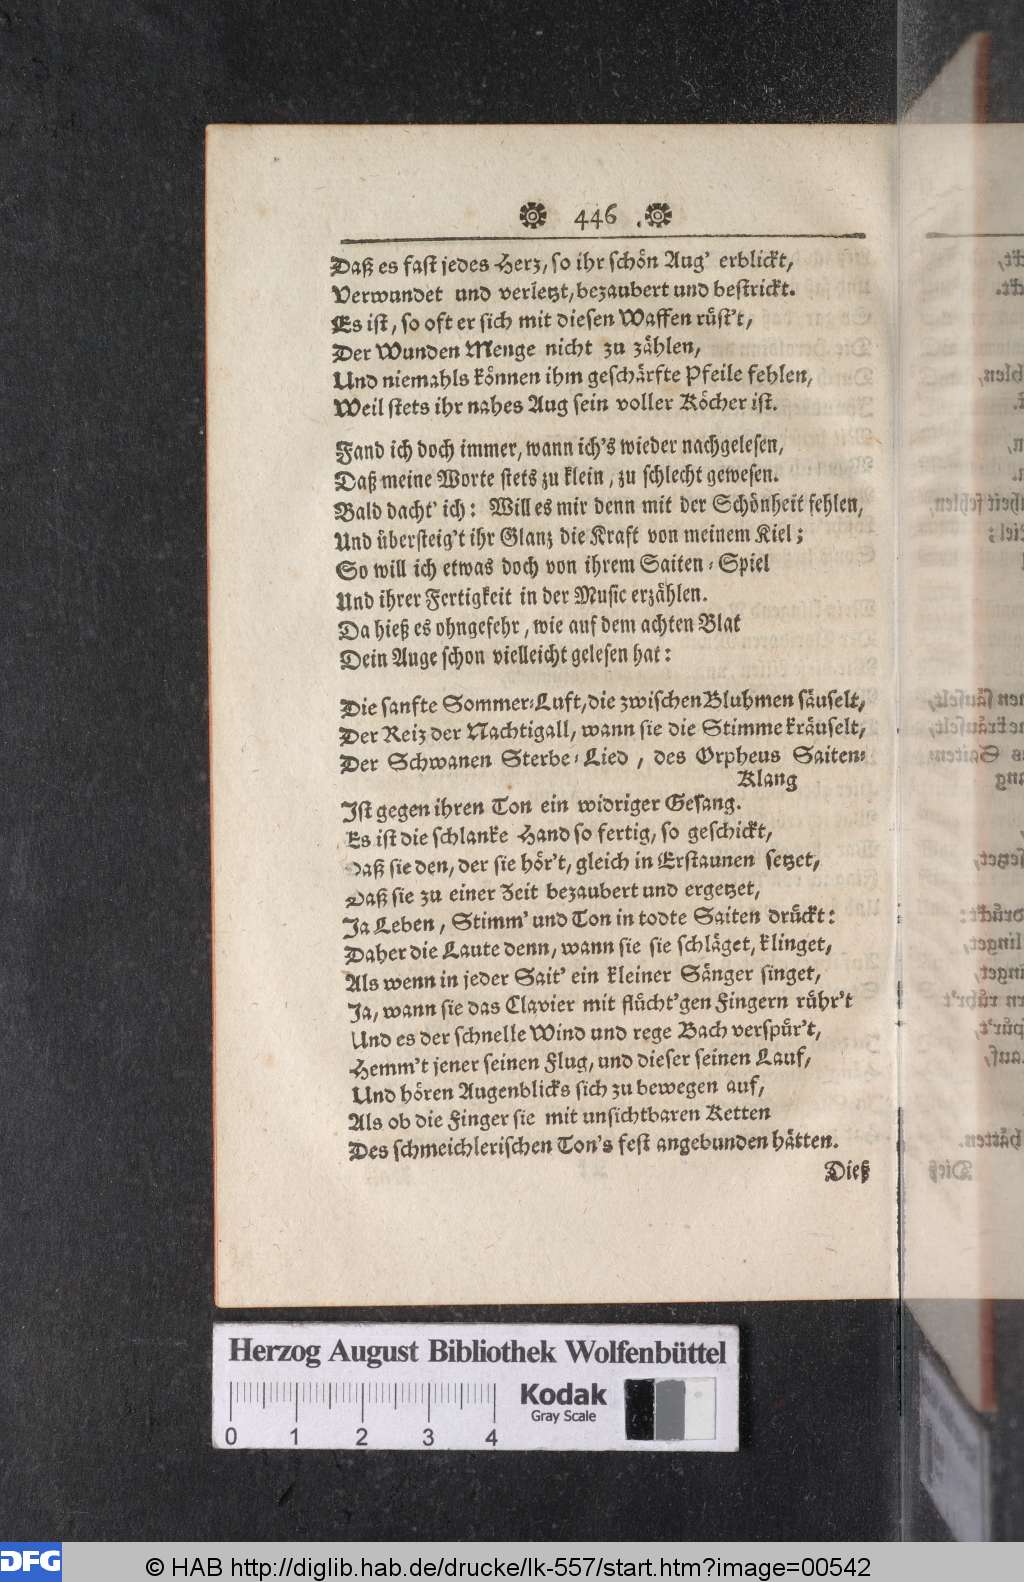 446
Daß es fast jedes Herz, so ihr schön Aug' erblickt,
Verwundet und verletzt, bezaubert und bestrickt.
Es ist, so oft er sich mit diesen Waffen rüst't,
Der Wunden Menge nicht zu zählen,
Und niemahls können ihm geschärfte Pfeile fehlen,
Weil stets ihr nahes Aug sein voller Köcher ist.
Fand ich doch immer, wann ich's wieder nachgelesen,
Daß meine Worte stets zu klein, zu schlecht gewesen.
Bald dacht' ich: Will es mir denn mit der Schönheit fehlen,
Und übersteig't ihr Glanz die Kraft von meinem Kiel;
So will ich etwas doch von ihrem Saiten-Spiel
Und ihrer Fertigkeit in der Music erzählen.
Da hieß es ohngefehr, wie auf dem achten Blat
Dein Auge schon vielleicht gelesen hat:
Die sanfte Sommer-Luft, die zwischen Bluhmen säuselt,
Der Reiz der Nachtigall, wann sie die Stimme kräuselt,
Der Schwanen Sterbe-Lied, des Orpheus Saiten-
Klang
Ist gegen ihren Ton ein widriger Gesang.
Es ist die schlanke Hand so fertig, so geschickt,
Daß sie den, der sie hör't, gleich in Erstaunen setzet,
Daß sie zu einer Zeit bezaubert und ergetzet,
Ja Leben, Stimm' und Ton in todte Saiten drückt:
Daher die Laute denn, wann sie sie schläget, klinget,
Als wenn in jeder Sait' ein kleiner Sänger singet,
Ja, wann sie das Clavier mit flücht'gen Fingern rühr't
Und es der schnelle Wind und rege Bach verspür't,
Hemm't jener seinen Flug, und dieser seinen Lauf,
Und hören Augenblicks sich zu bewegen auf,
Als ob die Finger sie mit unsichtbaren Ketten
Des schmeichlerischen Ton's fest angebunden hätten.
Dieß
Herzog August Bibliothek Wolfenbüttel
Kodak
Gray Scale
0 1 2 3 4
DFG © HAB http://diglib.hab.de/drucke/lk-557/start.htm?image=00542